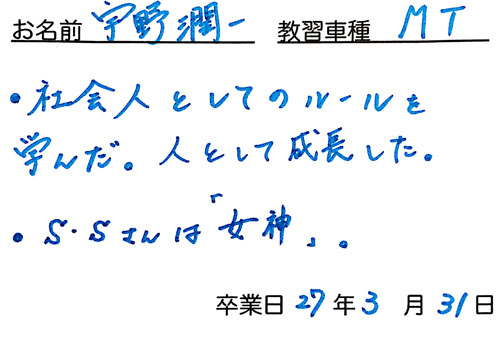 お名前 宇野潤一 教習車種 MT
・社会人としてのルールを
学んだ。人として成長した。
・S・Sさんは「女神」。
卒業日 27年3月31日